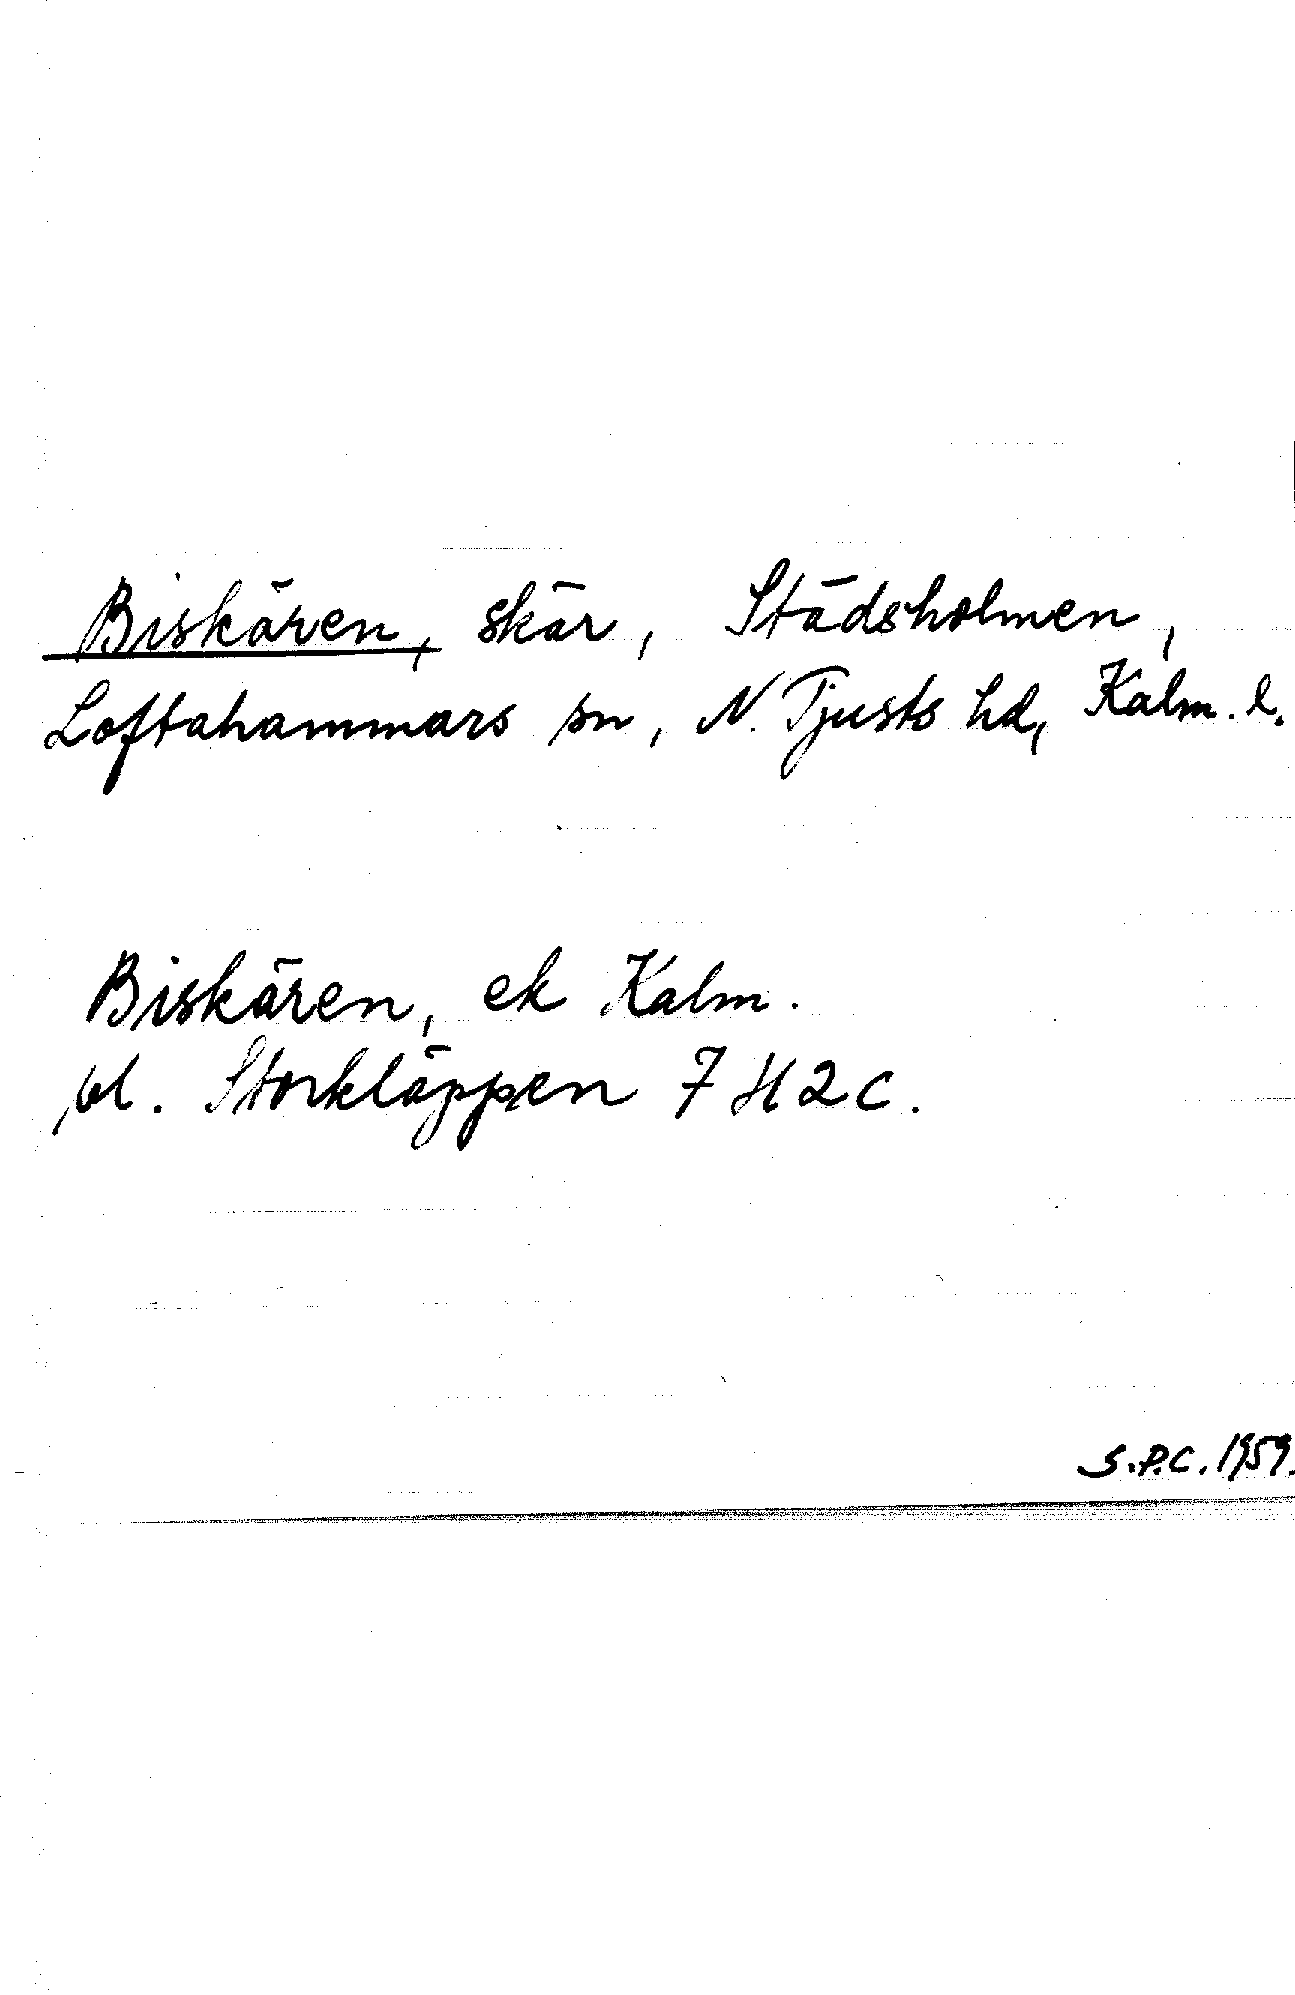 Biskären, skär, Städsholmen,
Loftahammars sn, N. Tjusts hd, Kalm. l.
Biskären, ek Kalm.
bl. Storkläppen 7 H 2 C.
S.P.C. 1959.